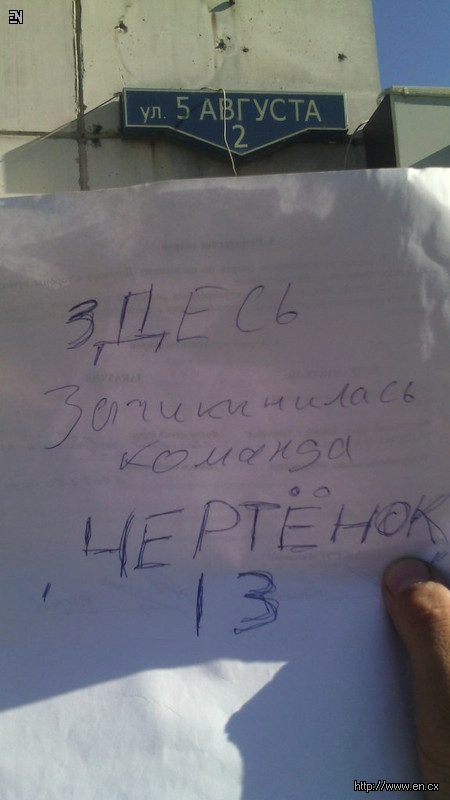 EN
ул. 5 АВГУСТА
2
ЗДЕСЬ
Зачикинилась
команда
ЧЕРТЁНОК
13
http://www.en.cx